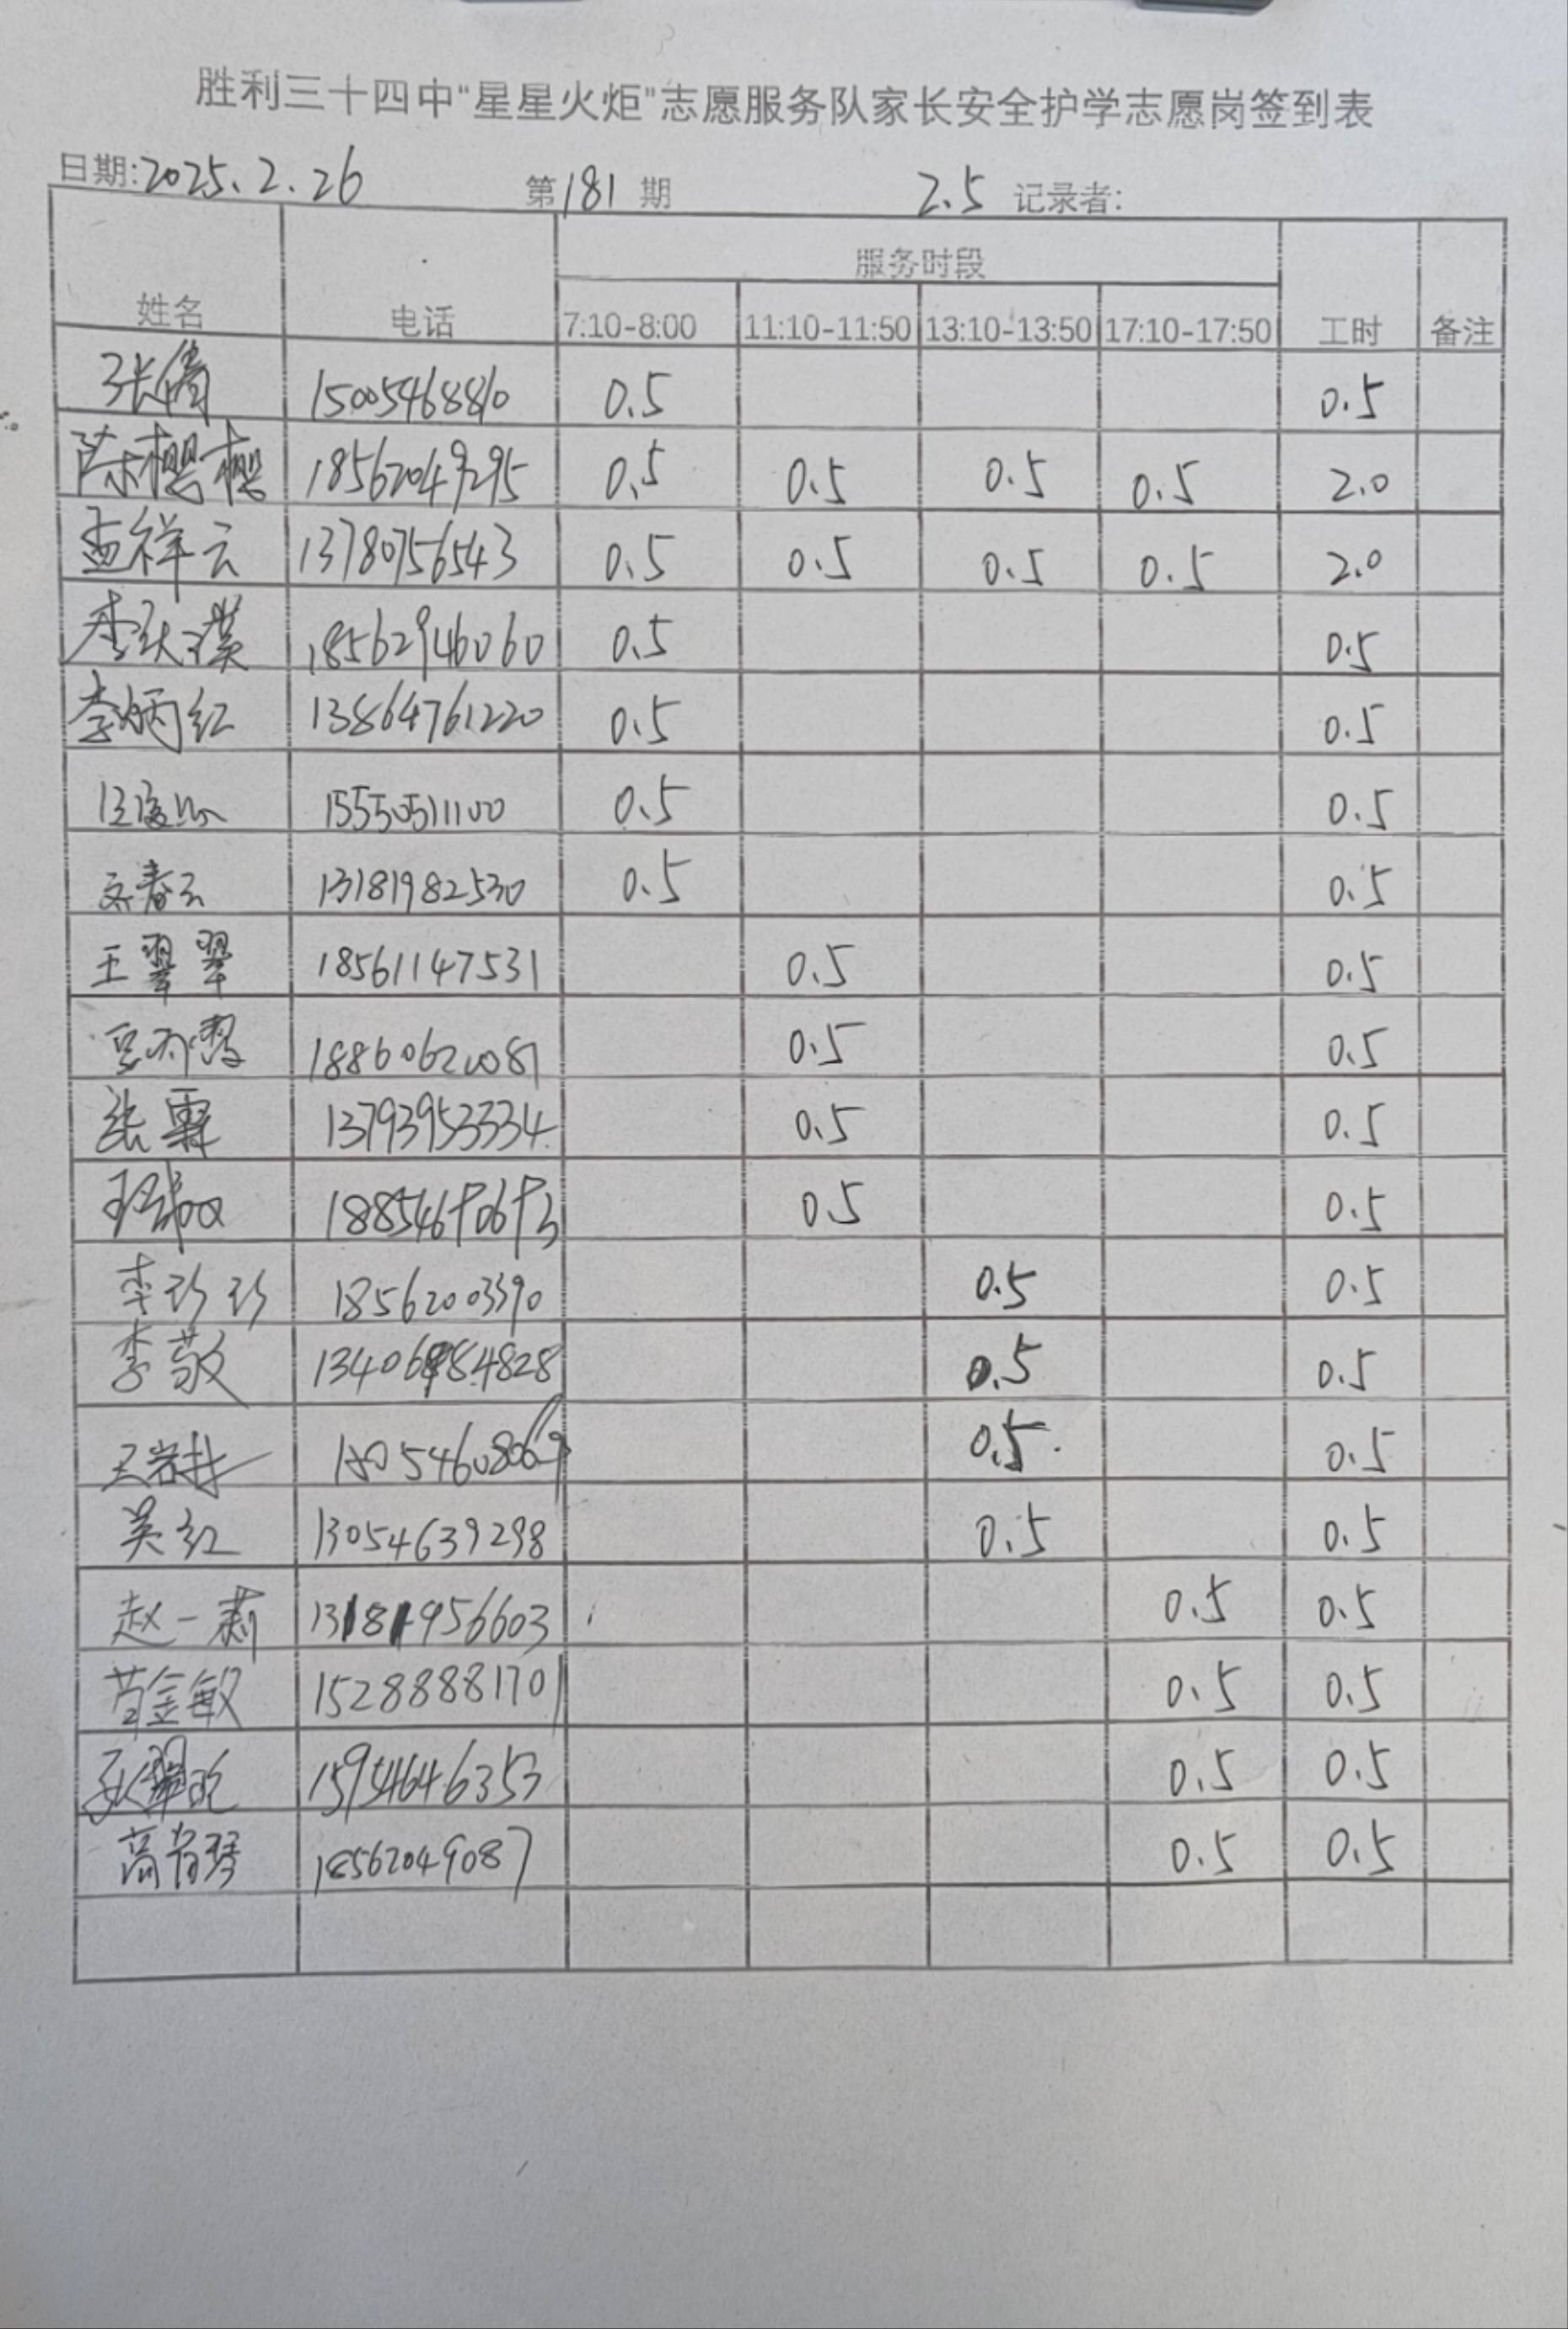 胜利三十四中“星星火炬”志愿服务队家长安全护学志愿岗签到表
日期:2025.2.26 第181期 2.5 记录者:
服务时段
姓名 电话 7:10-8:00 11:10-11:50 13:10-13:50 17:10-17:50 工时 备注
张倩 15005468810 0.5 0.5
陈樱樱 18562049295 0.5 0.5 0.5 0.5 2.0
孟祥云 13780756543 0.5 0.5 0.5 0.5 2.0
李 瑛 18562946060 0.5 0.5
李炳红 13864761220 0.5 0.5
15550511100 0.5 0.5
春云 13181982530 0.5 0.5
王翠翠 18561147531 0.5 0.5
18860620081 0.5 0.5
张霖 13793953334 0.5 0.5
0.5 0.5
李珍珍 18562003390 0.5 0.5
李敬 0.5 0.5
王岩 0.5 0.5
吴红 13054639298 0.5 0.5
赵一莉 13181956603 0.5 0.5
苗金敏 15288881701 0.5 0.5
15954646353 0.5 0.5
高肖琴 18562049087 0.5 0.5